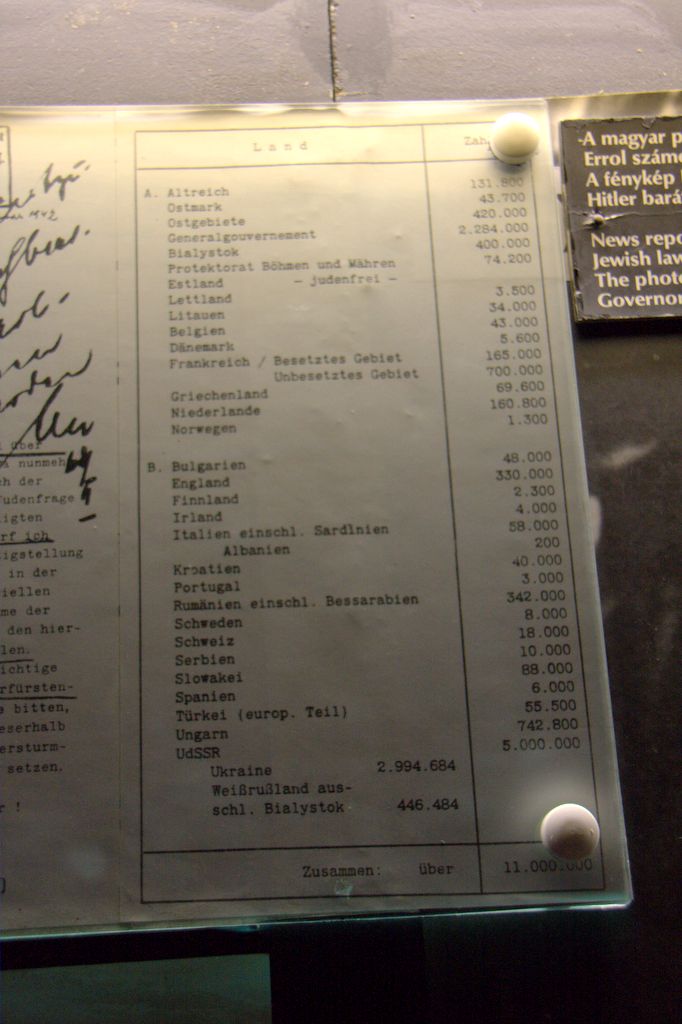 Land Zah
A. Altreich 131.800
Ostmark 43.700
Ostgebiete 420.000
Generalgouvernement 2.284.000
Bialystok 400.000
Protektorat Böhmen und Mähren 74.200
Estland - judenfrei -
Lettland 3.500
Litauen 34.000
Belgien 43.000
Dänemark 5.600
Frankreich / Besetztes Gebiet 165.000
Unbesetztes Gebiet 700.000
Griechenland 69.600
Niederlande 160.800
Norwegen 1.300
B. Bulgarien 48.000
England 330.000
Finnland 2.300
Irland 4.000
Italien einschl. Sardinien 58.000
Albanien 200
Kroatien 40.000
Portugal 3.000
Rumänien einschl. Bessarabien 342.000
Schweden 8.000
Schweiz 18.000
Serbien 10.000
Slowakei 88.000
Spanien 6.000
Türkei (europ. Teil) 55.500
Ungarn 742.800
UdSSR 5.000.000
Ukraine 2.994.684
Weißrußland aus-
schl. Bialystok 446.484
Zusammen: über 11.000.000
über
nunmeh
h der
udenfrage
igten
rf ich
igstellung
in der
iellen
me der
den hier-
len.
ichtige
rfürsten-
bitten,
eserhalb
ersturm-
setzen.
r !
A magyar p
Errol száme
A fénykép
Hitler bará
News repo
Jewish law
The photo
Governor